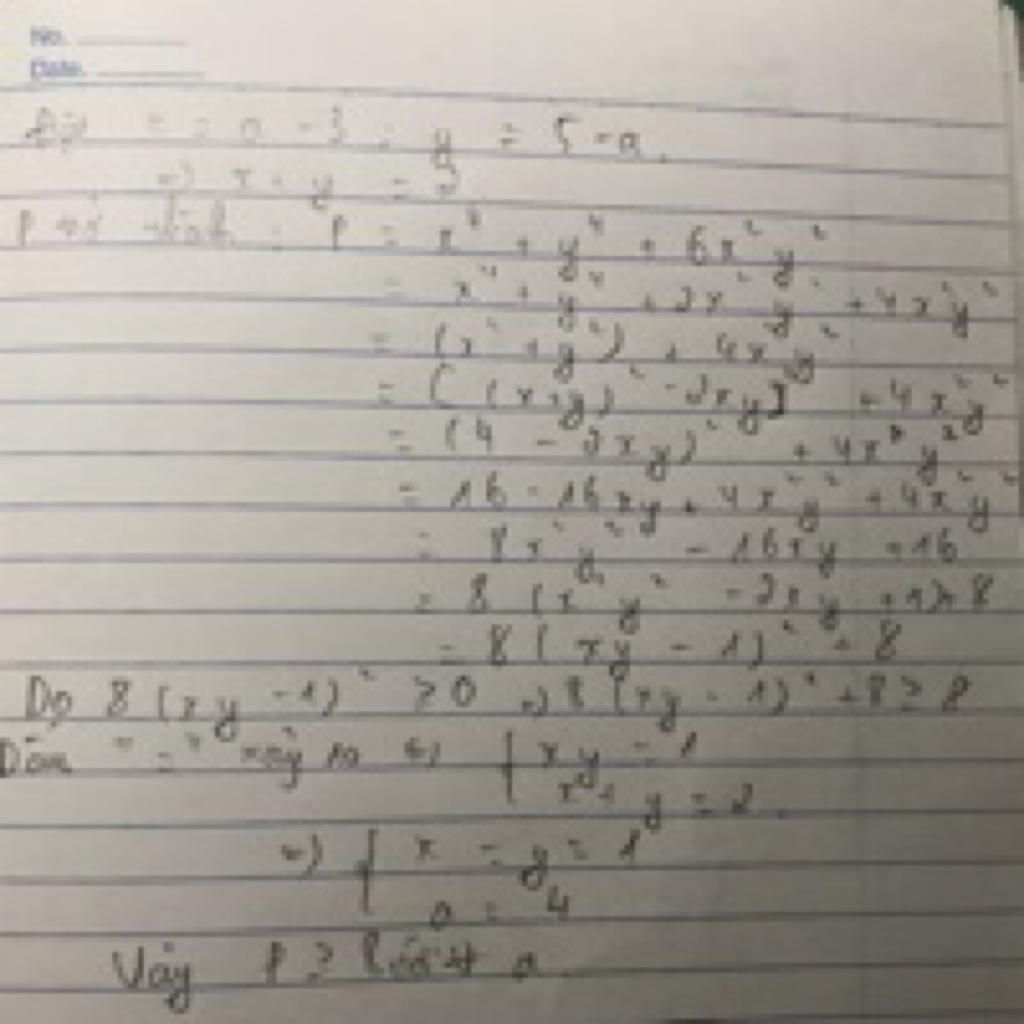 No.
Date.
= a - 3 ; y = 5 - a.
=> x + y = 2
P = x⁴ + y⁴ + 6x²y²
= x⁴ + y⁴ + 2x²y² + 4x²y²
= (x² + y²)² + 4x²y²
= [(x+y)² - 2xy]² + 4x²y²
= (4 - 2xy)² + 4x²y²
= 16 - 16xy + 4x²y² + 4x²y²
= 8x²y² - 16xy + 16
= 8 (x²y² - 2xy + 1) + 8
= 8 (xy - 1)² + 8
Do 8 (xy - 1)² ≥ 0 => 8 (xy - 1)² + 8 ≥ 8
"=" xảy ra <=> { xy = 1
x + y = 2.
=> { x = y = 1
a = 4
Vậy P ≥ 8 a